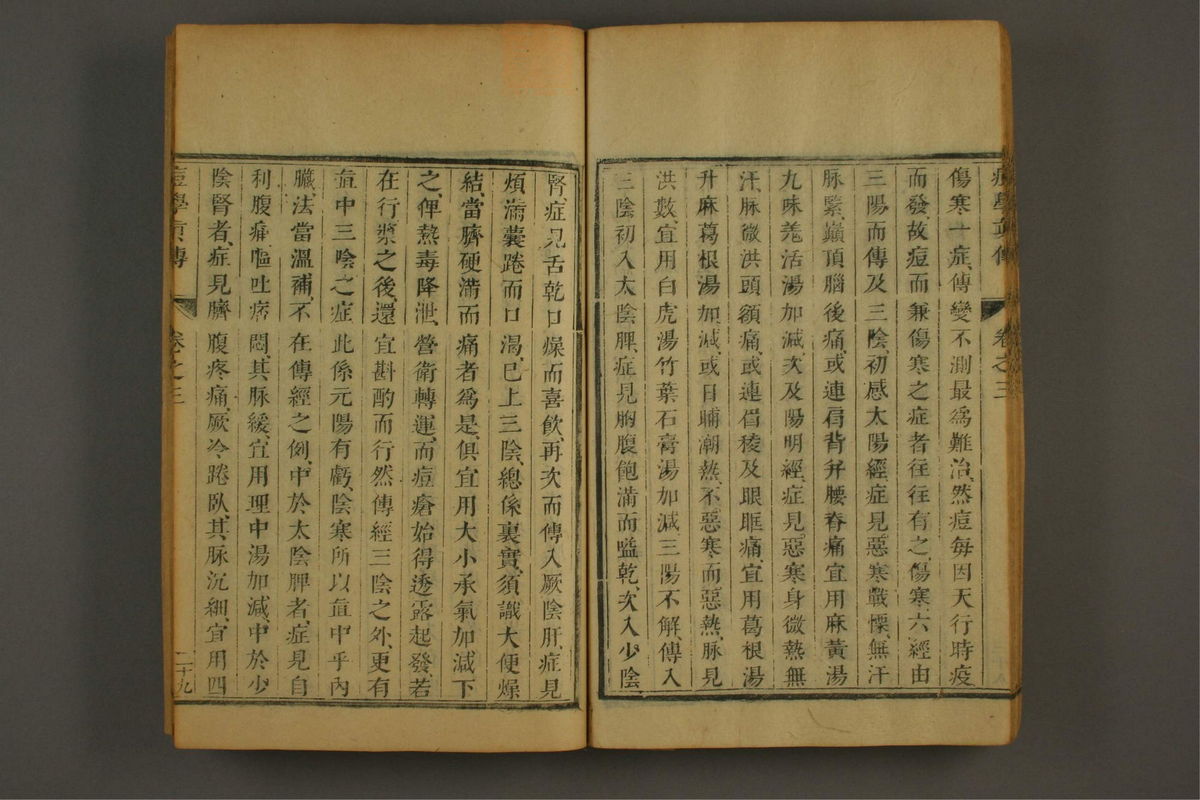 傷寒一症、傳變不測最爲難治、然痘每因天行時疫
而發、故痘而兼傷寒之症者往往有之、傷寒六經由
三陽而傳及三陰、初感太陽經、症見惡寒戰慄、無汗
脉緊、巔頂腦後痛、或連肩背并腰脊痛宜用麻黃湯
九味羗活湯加減、次及陽明經、症見惡寒身微熱無
汗、脉微洪頭額痛、或連眉稜及眼眶痛、宜用葛根湯
升麻葛根湯加減、或日晡潮熱、不惡寒而惡熱、脉見
洪數、宜用白虎湯竹葉石膏湯加減三陽不解、傳入
三陰初入太陰脾、症見胸腹飽滿而嗌乾、次入少陰
腎、症見舌乾口燥而喜飲、再次而傳入厥陰肝、症見
煩滿囊踡而口渴、已上三陰、總係裏實、須識大便燥
結、當臍硬滿而痛者爲是、俱宜用大小承氣加減下
之、俾熱毒降泄、營衛轉運、而痘瘡始得透露起發、若
在行漿之後、還宜斟酌而行然傳經三陰之外、更有
直中三陰之症此係元陽有虧、陰寒所以直中乎內
臟、法當溫補、不在傳經之例、中於太陰脾者、症見自
利腹痛、嘔吐痞悶、其脉緩、宜用理中湯加減、中於少
陰腎者、症見臍腹疼痛、厥冷踡臥、其脉沉細、宜用四
痘學眞傳 卷之三 二十九